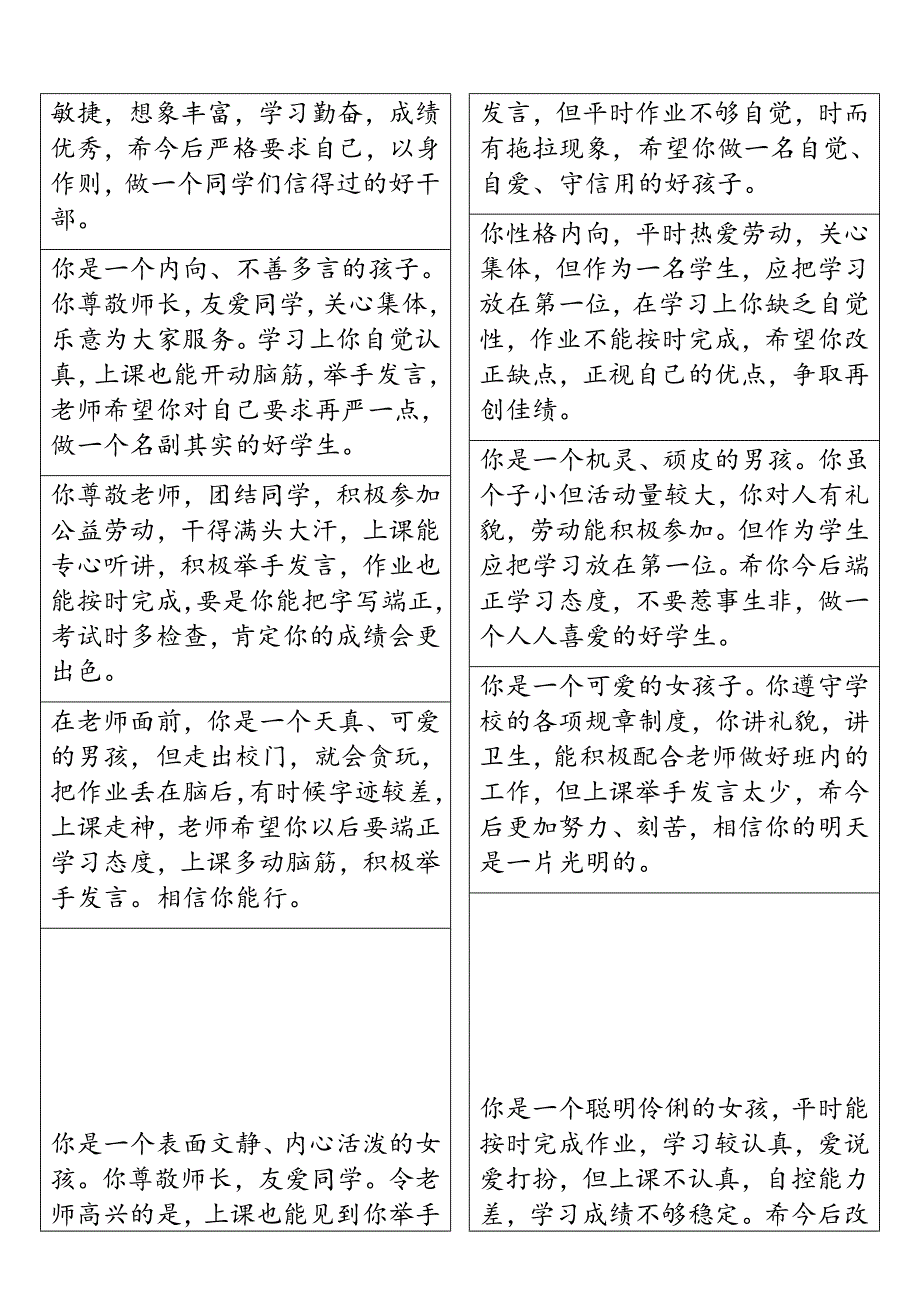 敏捷，想象丰富，学习勤奋，成绩
优秀，希今后严格要求自己，以身
作则，做一个同学们信得过的好干
部。
你是一个内向、不善多言的孩子。
你尊敬师长，友爱同学，关心集体，
乐意为大家服务。学习上你自觉认
真，上课也能开动脑筋，举手发言，
老师希望你对自己要求再严一点，
做一个名副其实的好学生。
你尊敬老师，团结同学，积极参加
公益劳动，干得满头大汗，上课能
专心听讲，积极举手发言，作业也
能按时完成，要是你能把字写端正，
考试时多检查，肯定你的成绩会更
出色。
在老师面前，你是一个天真、可爱
的男孩，但走出校门，就会贪玩，
把作业丢在脑后，有时候字迹较差，
上课走神，老师希望你以后要端正
学习态度，上课多动脑筋，积极举
手发言。相信你能行。
你是一个表面文静、内心活泼的女
孩。你尊敬师长，友爱同学。令老
师高兴的是，上课也能见到你举手
发言，但平时作业不够自觉，时而
有拖拉现象，希望你做一名自觉、
自爱、守信用的好孩子。
你性格内向，平时热爱劳动，关心
集体，但作为一名学生，应把学习
放在第一位，在学习上你缺乏自觉
性，作业不能按时完成，希望你改
正缺点，正视自己的优点，争取再
创佳绩。
你是一个机灵、顽皮的男孩。你虽
个子小但活动量较大，你对人有礼
貌，劳动能积极参加。但作为学生
应把学习放在第一位。希你今后端
正学习态度，不要惹事生非，做一
个人人喜爱的好学生。
你是一个可爱的女孩子。你遵守学
校的各项规章制度，你讲礼貌，讲
卫生，能积极配合老师做好班内的
工作，但上课举手发言太少，希今
后更加努力、刻苦，相信你的明天
是一片光明的。
你是一个聪明伶俐的女孩，平时能
按时完成作业，学习较认真，爱说
爱打扮，但上课不认真，自控能力
差，学习成绩不够稳定。希今后改